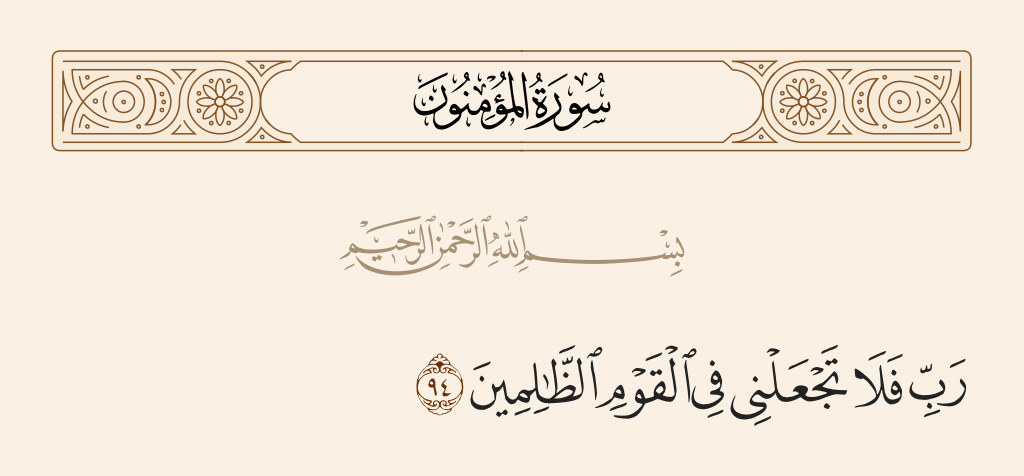 سُورَةُ الْمُؤْمِنُونَ
بِسْمِ ٱللَّهِ ٱلرَّحْمَٰنِ ٱلرَّحِيمِ
رَبِّ فَلَا تَجْعَلْنِي فِي ٱلْقَوْمِ ٱلظَّٰلِمِينَ ٩٤